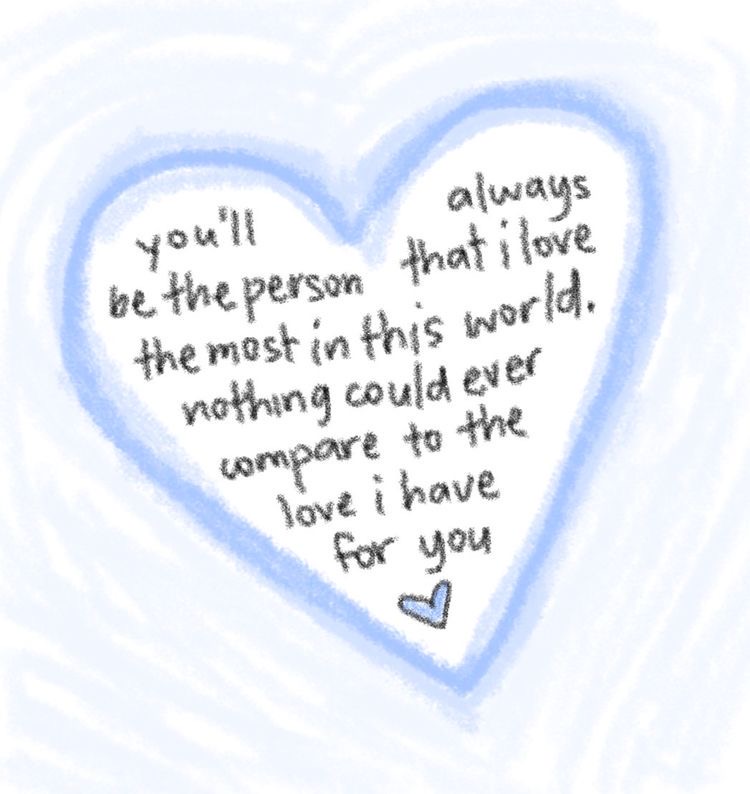 you'll always
be the person that i love
the most in this world.
nothing could ever
compare to the
love i have
for you